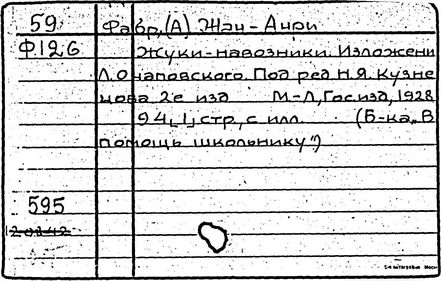 59 Фабр, (А) Жан-Анри
Ф126 Жуки-навозники. Изложени
Л. Очаповского. Под ред Н.Я. Кузне
цова 2е изд М-Л, Гос.изд, 1928
94[1]стр, с илл. (Б-ка „В
помощь школьнику")
595